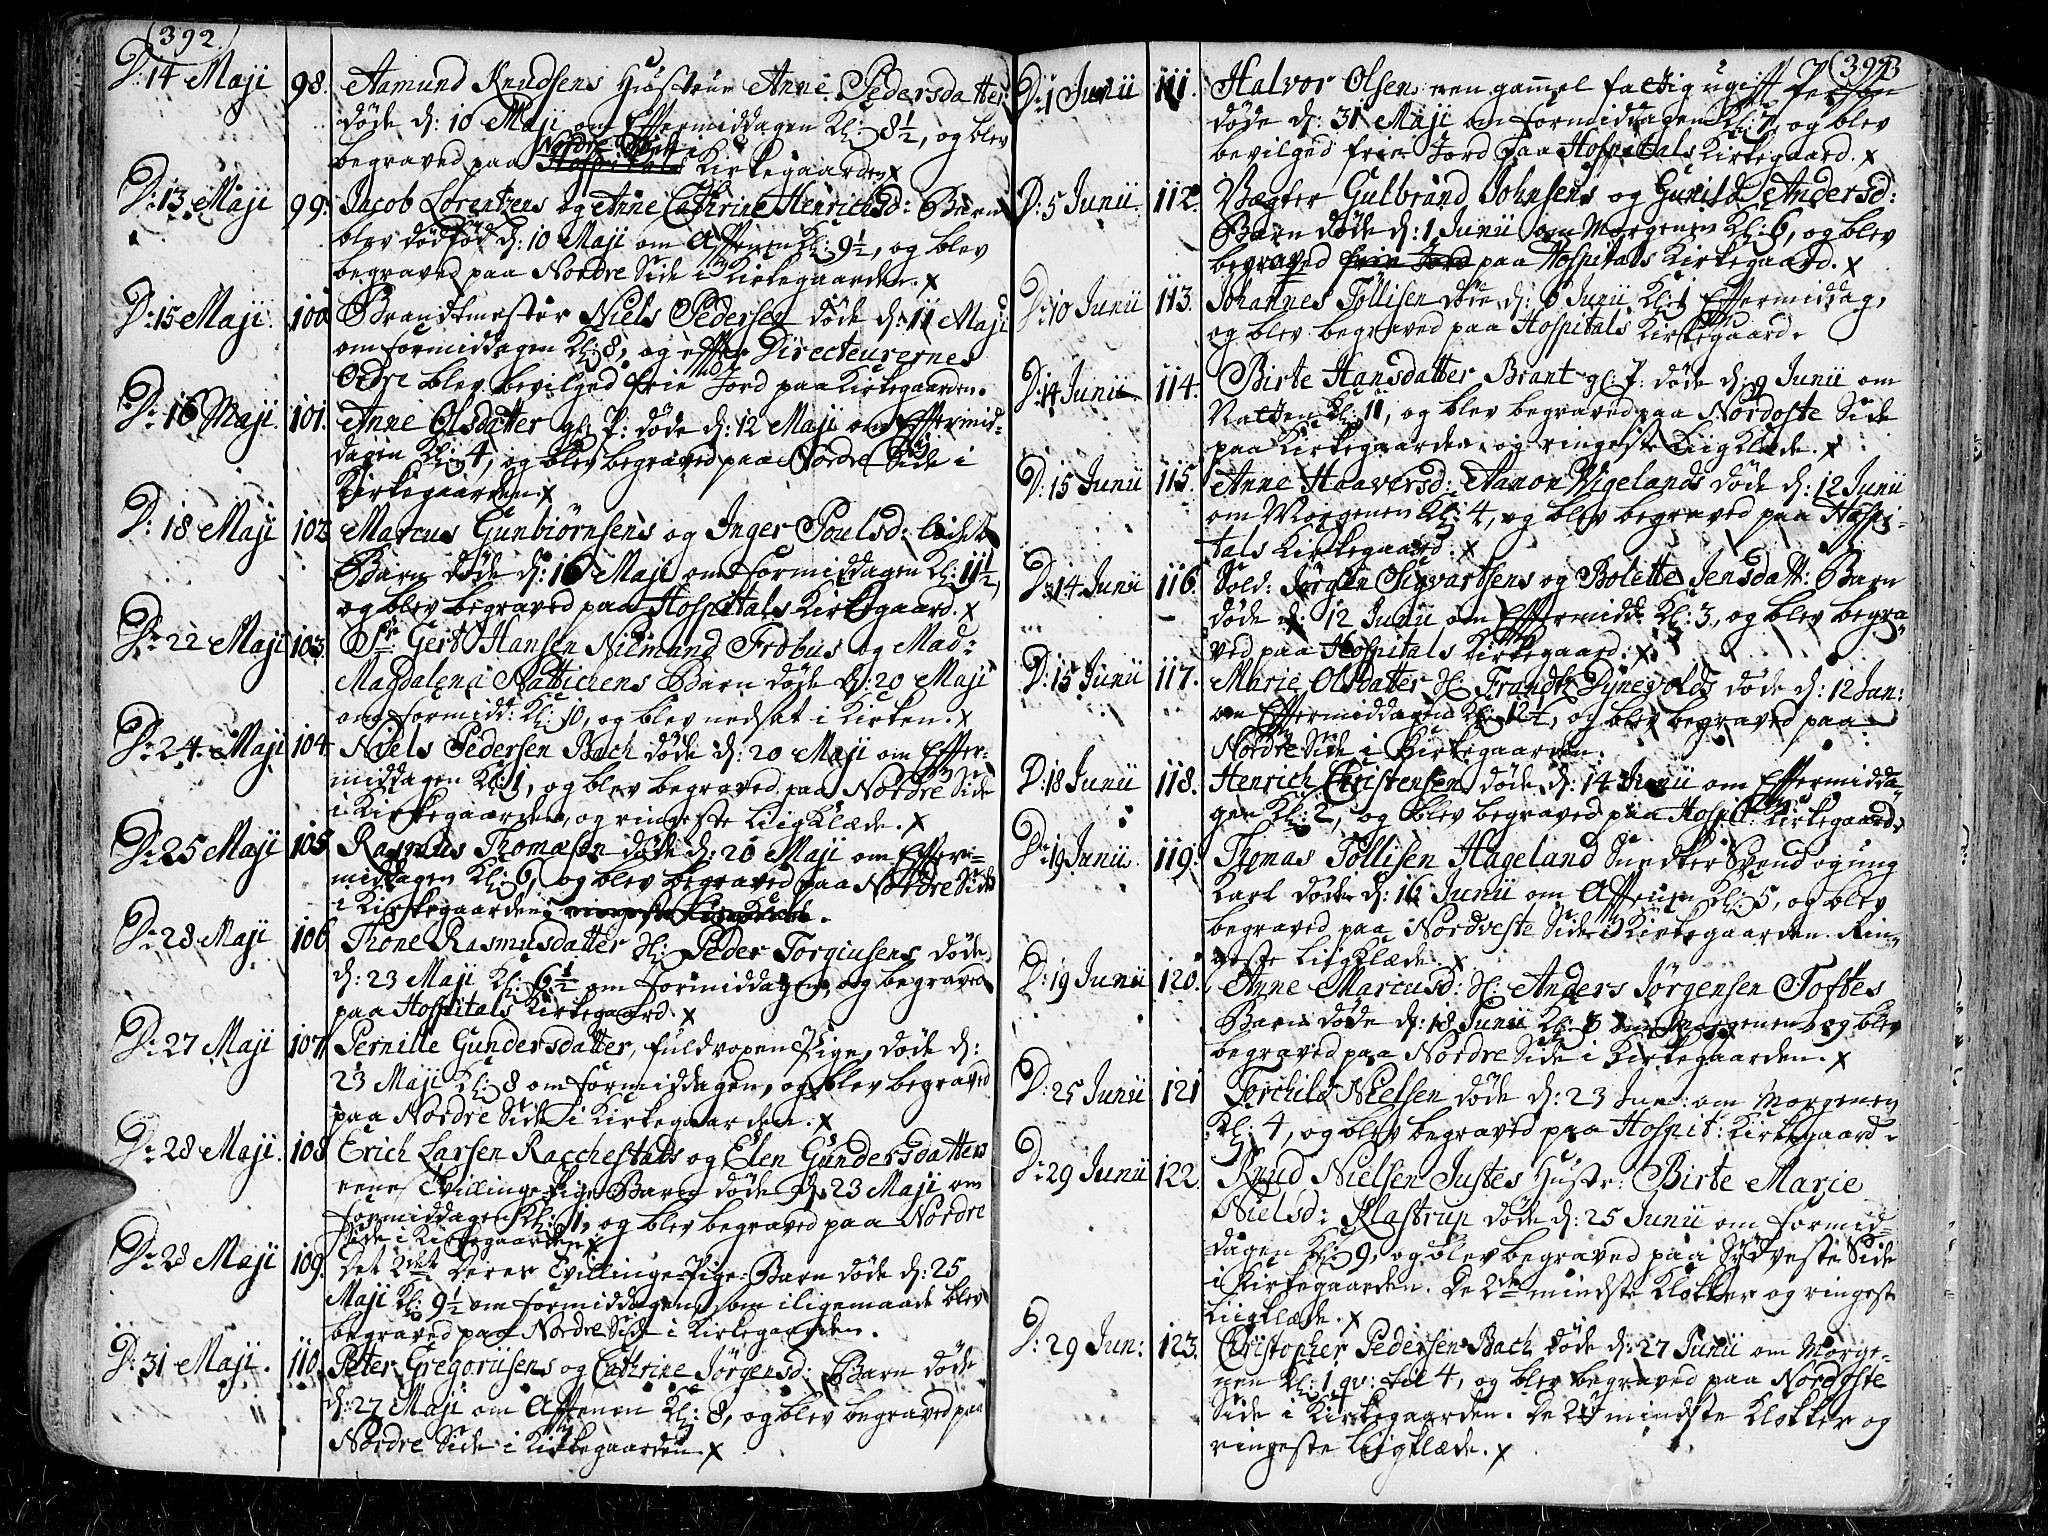 (392.)
D: 14 Maji 98. Aamund Knudsens Hustrue Anne Pedersdatter
døde d: 10 Maji om Eftermiddagen Kl: 8½, og blev
begraved paa Nordre Side i Kirkegaarden x
D: 13 Maji 99. Jacob Lorentzens og Anne Cathrine Henrichsd: Barn
blev dødfød d: 10 Maji om Aftenen Kl: 9½, og blev
begraved paa Nordre Side i Kirkegaarden. x
D: 15 Maji. 100 Brandtmester Niels Pedersen døde d: 11 Maji
om formiddagen Kl: 8, og efter Directeurernes
Ordre blev bevilged frie Jord paa Kirkegaarden.
D: 16 Maji. 101. Anne Olsdatter gl: P: døde d: 12 Maji om Eftermid-
dagen Kl: 4, og blev begraved paa Nordre Side i
Kirkegaarden. x
D: 18 Maji 102 Marcus Gunbiørnsens og Inger Poulsd:
Barn døde d: 16 Maji om formiddagen Kl: 11½,
og blev begraved paa Hospitals Kirkegaard. x
D: 22 Maji 103. Sr: Gert Hansen Niemand Frobus og Mad:
Magdalena Barn døde d: 20 Maji
om formidd: Kl: 10, og blev nedsat i Kirken. x
D: 24. Maji 104. Niels Pedersen Bach døde d: 20 Maji om Efter-
middagen Kl: 1, og blev begraved paa Nordre Side
i Kirkegaarden, og ringeste Liigklæde. x
D: 25 Maji 105 Rasmus Thomasen døde d: 20 Maji om Efter-
middagen Kl: 6, og blev begraved paa Nordre Side
i Kirkegaarden, ringeste Liigklæde.
D: 28 Maji 106 Thone Rasmusdatter H: Peder Torgiusens døde
d: 23 Maji Kl: 6½ om formiddagen, og begraved
paa Hospitals Kirkegaard. x
D: 27 Maji 107. Pernille Gundersdatter, fuldvoxen Pige, døde d:
23 Maji Kl: 8 om formiddagen, og blev begraved
paa Nordre Side i Kirkegaarden. x
D: 28 Maji. 108. Erich Larsen Racchestads og Elen Gundersdatters
eene Tvillinge-Pige-Barn døde d: 23 Maji om
formiddagen Kl: 11, og blev begraved paa Nordre
Side i Kirkegaarden x
D: 28 Maji 109. Det 2det Deres Tvillinge-Pige-Barn døde d: 25
Maji Kl: 9½ om formiddagen, som iligemaade blev
begraved paa Nordre Side i Kirkegaarden.
D: 31 Maji. 110. Peter Gregoriisens og Cathrine Jörgensd: Barn døde
d: 27 Maji om Aftenen Kl: 8, og blev begraved paa
Nordre Side i Kirkegaarden. x
(393
D: 1 Junii 111. Halvor Olsen en gammel fattig ugift Person
døde d: 31 Maji om formiddagen Kl: og blev
bevilged frie Jord paa Hospitals Kirkegaard. x
D: 5 Junii 112. Vægter Gulbrand Johnsens og Gunild Andersd:
Barn døde d: 1 Junii om Morgenen Kl: 6, og blev
begraved frie Jord paa Hospitals Kirkegaard. x
D: 10 Junii 113. Johannes Tollisen døde d: 6 Junii Kl: 1 Eftermiddag,
og blev begraved paa Hospitals Kirkegaard.
D: 14 Junii 114. Birte Hansdatter Brant gl: P: døde d: 9 Junii om
Natten Kl: 11, og blev begraved paa Nordoste Side
paa Kirkegaarden, og ringeste Liigklæde. x
D: 15 Junii 115. Anne Haaversd: Aanon Vigelands døde d: 12 Junii
om Morgenen Kl: 4, og blev begraved paa Hospi-
tals Kirkegaard. x
D: 14 Junii 116. Sold: Jørgen Sigvartsens og Bolette Jensdatt: Barn
døde d: 12 Junii om Eftermidd: Kl: 3, og blev begra-
ved paa Hospitals Kirkegaard. x
D: 15 Junii 117. Marie Olsdatter H: Frandtz Dynevolds døde d: 12 Jun:
om Eftermiddagen Kl: 12½, og blev begraved paa
Nordre Side i Kirkegaarden.
D: 18 Junii 118. Henrich Christensen døde d: 14 Junii om Eftermidda-
gen Kl: 2, og blev begraved paa Hospit: Kirkegaard.
D: 19 Junii. 119. Thomas Tollisen Hageland Snedker Svend og ung
Karl døde d: 16 Junii om Aftenen Kl: 5, og blev
begraved paa Nordveste Side i Kirkegaarden. Rin-
geste Liigklæde. x
D: 19 Junii 120. Anne Marcusd: H: Anders Jørgensen Toftes
Barn døde d: 18 Junii Kl: 3 om Morgenen, og blev
begraved paa Nordre Side i Kirkegaarden. x
D: 25 Junii 121 Torchild Nielsen døde d: 23 Jun: om Morgenen
Kl: 4, og blev begraved paa Hospit: Kirkegaard.
D: 29 Junii 122. Knud Nielsen Justes Hustr: Birte Marie
Nielsd: Klastrup døde d: 25 Junii om formid-
dagen Kl: 9, og blev begraved paa Sydveste Side
i Kirkegaarden. De 2de mindste Klokker og ringeste
Liigklæde. x
D: 29 Jun: 123. Christopher Pedersen Bach døde d: 27 Junii om Morge-
nen Kl: 1 qv: til 4, og blev begraved paa Nordoste
Side i Kirkegaarden. De 2de mindste Klokker og
ringeste Liigklæde. x